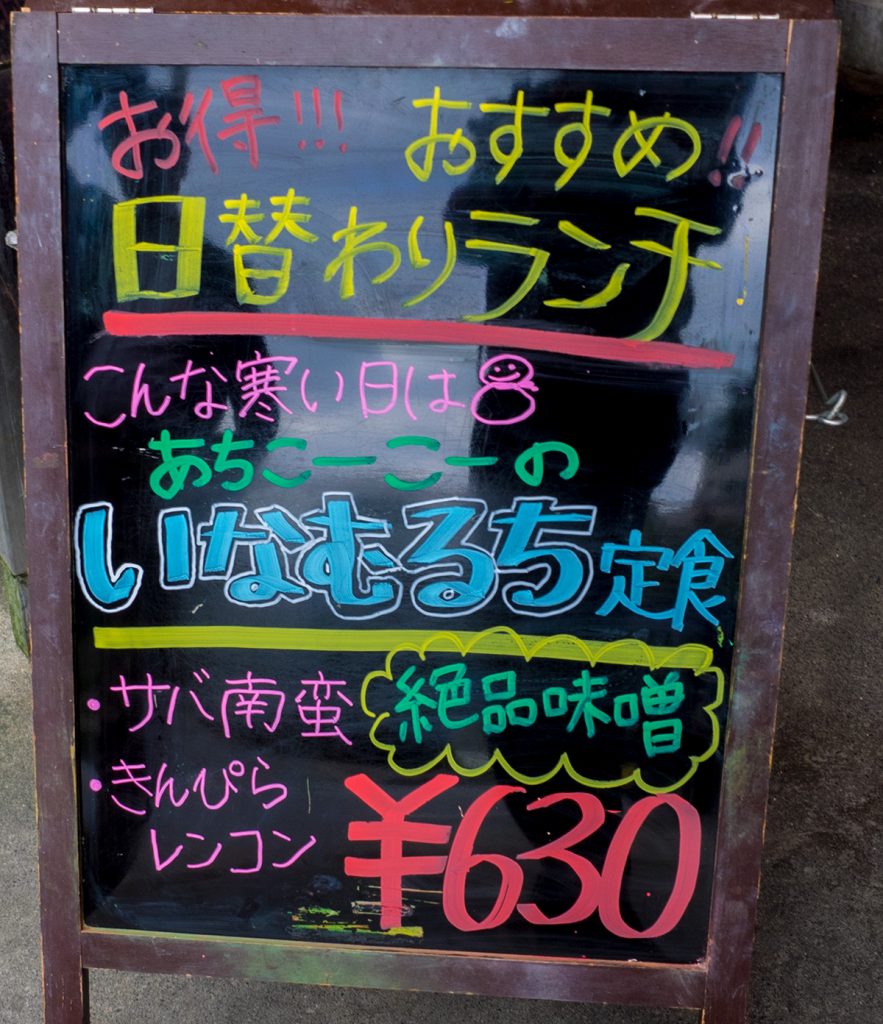 お得!!! おすすめ!!
日替わりランチ
こんな寒い日は
あちこーこーの
いなむるち定食
・サバ南蛮
絶品味噌
・きんぴら
レンコン
¥630